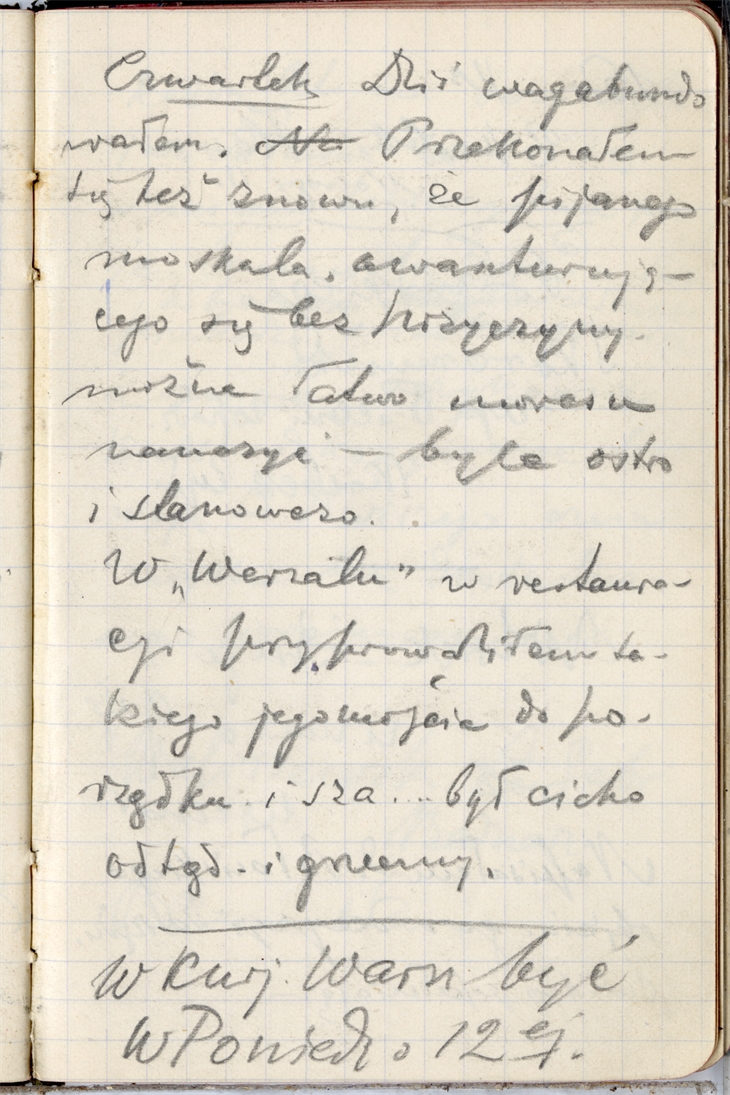 Czwartek Dziś wagabundo
wałem. Na Przekonałem
się też znowu, że pijanego
moskala, awanturują-
cego się bez przyczyny
można łatwo moresu
nauczyć – byle ostro
i stanowczo.
W „Wersalu” w restaura-
cji przyprowadziłem ta-
kiego jegomościa do po-
rządku i sza... był cicho
odtąd i grzeczny.
W Kurj. Warsz być
W Poniedz o 12 ej.